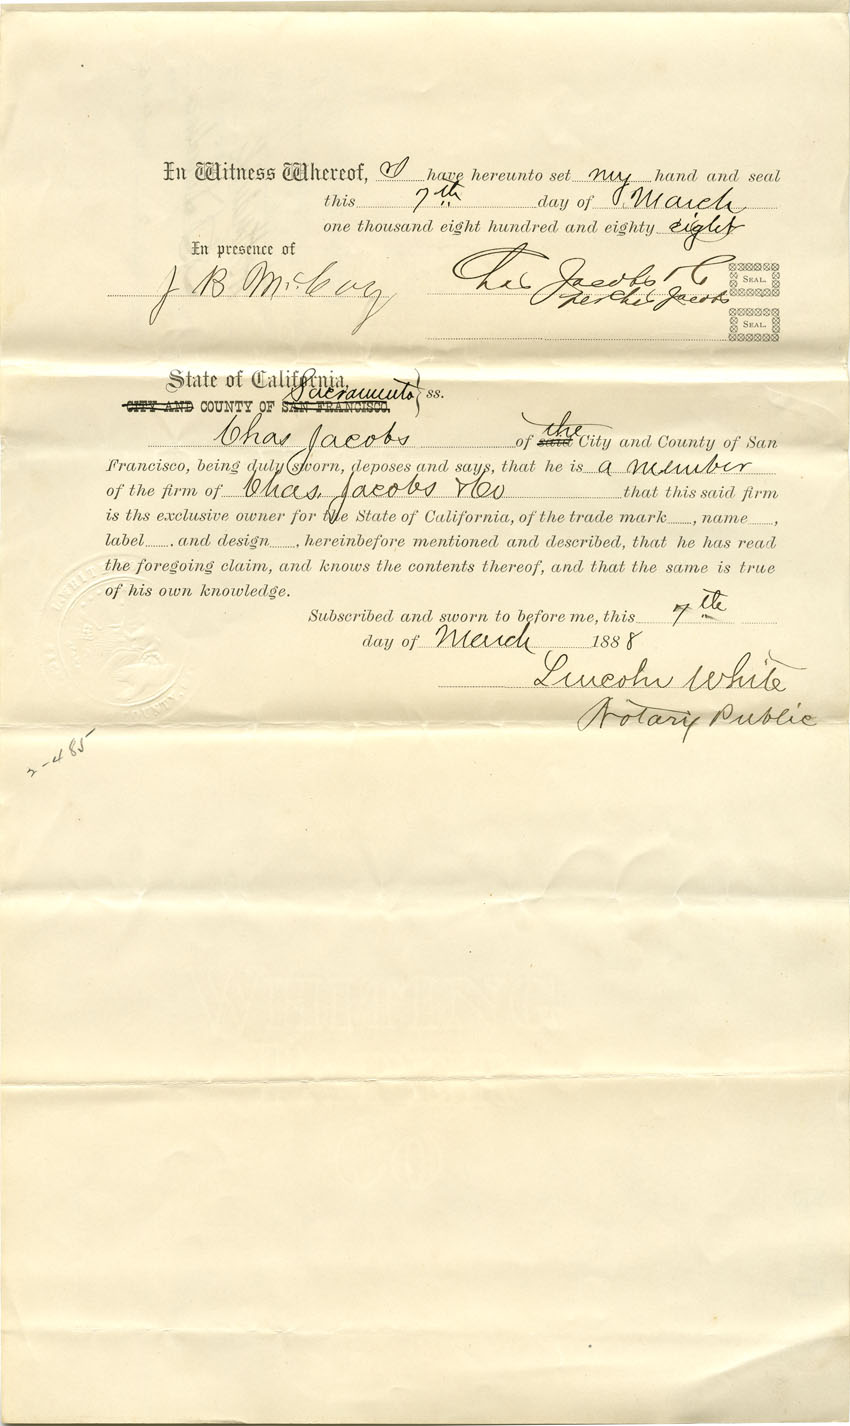 In Witness Whereof, I have hereunto set my hand and seal
this 7th day of March
one thousand eight hundred and eighty eight
In presence of
J B McCoy Chas Jacobs & C
per Chas Jacobs
SEAL.
SEAL.
State of California,
CITY AND COUNTY OF SAN FRANCISCO. Sacramento ss.
Chas Jacobs of said the City and County of San
Francisco, being duly sworn, deposes and says, that he is a member
of the firm of Chas. Jacobs & Co that this said firm
is ths exclusive owner for the State of California, of the trade mark, name,
label, and design, hereinbefore mentioned and described, that he has read
the foregoing claim, and knows the contents thereof, and that the same is true
of his own knowledge.
Subscribed and sworn to before me, this 7th
day of March 1888
Lincoln White
Notary Public
2-485